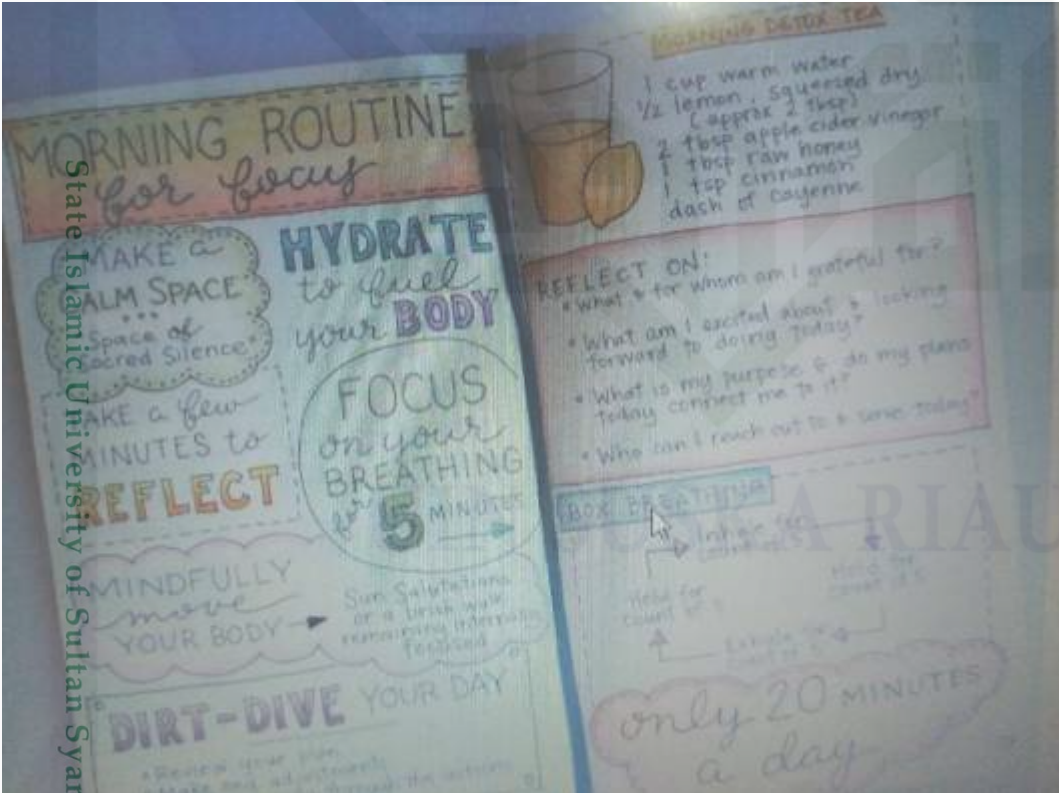 MORNING ROUTINE
for focus
MAKE a
CALM SPACE
Space of
Sacred Silence
HYDRATE
to fuel
your BODY
TAKE a few
MINUTES to
REFLECT
FOCUS
on your
BREATHING
for 5 MINUTES
MINDFULLY
move
YOUR BODY
Sun Salutations
or a brisk walk
remaining internally
focused
DIRT-DIVE YOUR DAY
Review your plan
MORNING DETOX TEA
1 cup warm water
1/2 lemon, squeezed dry
(approx 2 tbsp)
2 tbsp apple cider vinegar
1 tbsp raw honey
1 tsp cinnamon
dash of cayenne
REFLECT ON:
• What & for whom am I grateful for?
• What am I excited about & looking
forward to doing today?
• What is my purpose & do my plans
today connect me to it?
• Who can I reach out to & serve today?
BOX BREATHING
Inhale for
Hold for
count of 5
Exhale for
Hold for
count of 5
only 20 MINUTES
a day
State Islamic University of Sultan Syar
RIAU